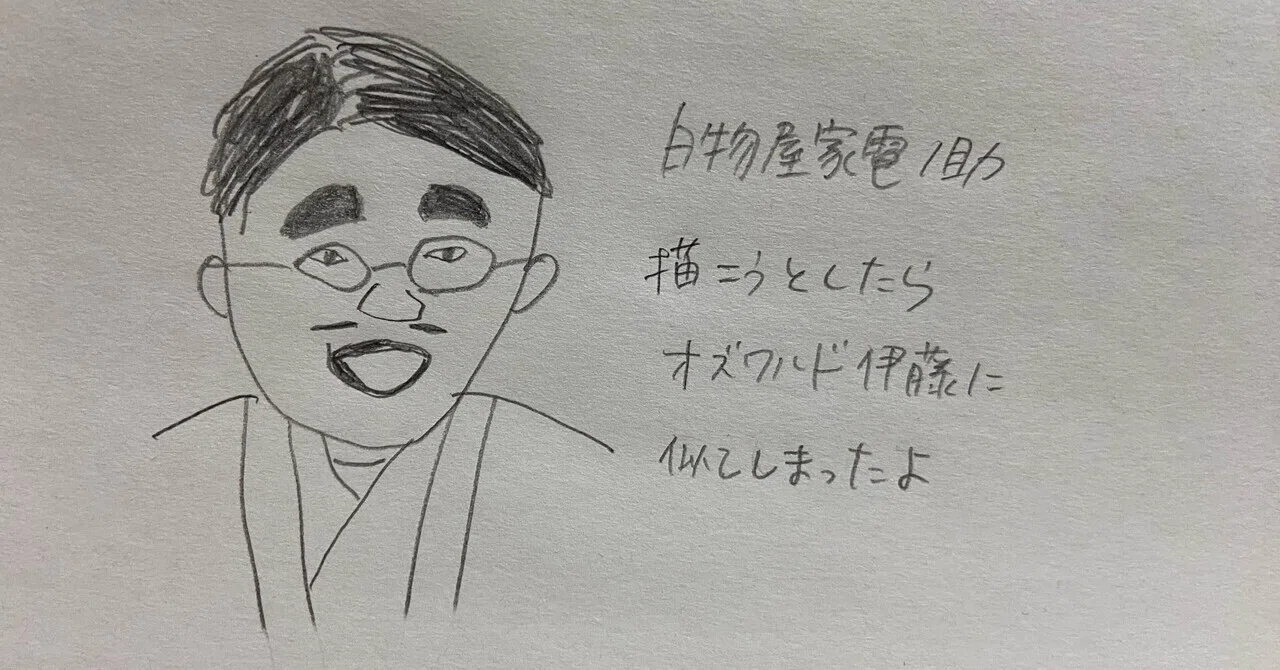 白物屋家電ノ助
描こうとしたら
オズワルド伊藤に
似てしまったよ